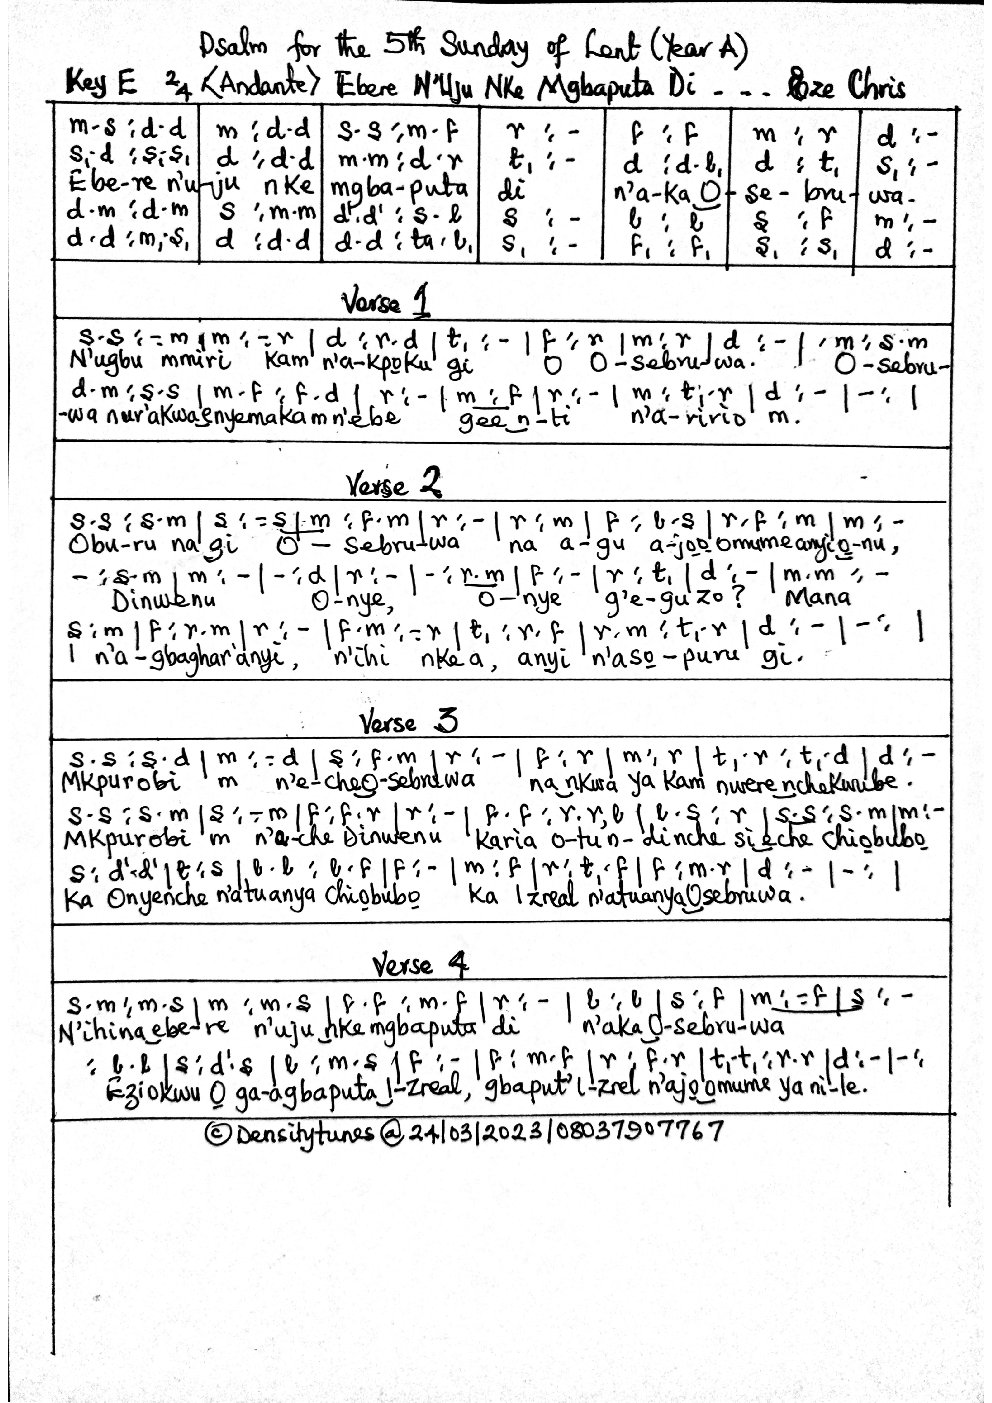 Psalm for the 5th Sunday of Lent (Year A)
Key E 2/4 <Andante> Ebere N'Uju Nke Mgbaputa Di - - - Eze Chris
m.s :d.d | m :d.d | s.s :m.f | r :- | f :f | m :r | d :-
s₁.d :s₁.s₁ | d :d.d | m.m :d.r | t₁ :- | d :d.l₁ | d :t₁ | s₁ :-
Ebe-re n'u-ju nke mgba-puta di n'a-ka O-se-bru-wa.
d.m :d.m | s :m.m | d'.d' :s.l | s :- | l :l | s :f | m :-
d.d :m₁.s₁ | d :d.d | d.d :ta.l₁ | s₁ :- | f₁ :f₁ | s₁ :s₁ | d :-
Verse 1
s.s :=m | m :=r | d :r.d | t₁ :- | f :r | m :r | d :- | .m :s.m
N'ugbu mmiri kam n'a-kpọku gi O O-sebru-wa. O-sebru-
d.m :s.s | m.f :f.d | r :- | m :f | r :- | m :t₁.r | d :- | - : |
-wa nur'akwaenyemakam n'ebe gee n-ti n'a-ririo m.
Verse 2
s.s :s.m | s :=s | m :f.m | r :- | r :m | f :l.s | r.f :m | m :-
Obu-ru na gi O - sebru-wa na a-gu a-jọọ omume anyị ọ-nu,
- :s.m | m :- | - :d | r :- | - :r.m | f :- | r :t₁ | d :- | m.m :-
Dinwenu O-nye, O-nye g'e-guzo? Mana
s :m | f :r.m | r :- | f.m :=r | t₁ :r.f | r.m :t₁.r | d :- | - : |
I n'a-gbaghar'anyi, n'ihi nke a, anyi n'asọ-puru gi.
Verse 3
s.s :s.d | m :=d | s :f.m | r :- | f :r | m :r | t₁.r :t₁.d | d :-
Mkpurobi m n'e-che O-sebruwa na nkwa ya kam nwere nchekwube.
s.s :s.m | s :-m | f :f.r | r :- | f.f :r.r,l | l.s :r | s.s :s.m | m :-
Mkpurobi m n'a-che Dinwenu karia o-tu n-dinche si eche chiọbubọ
s :d'.d' | t :s | l.l :l.f | f :- | m :f | r :t₁.f | f :m.r | d :- | - : |
Ka Onyenche n'atuanya chiọbubọ Ka Izreal n'atuanya Osebruwa.
Verse 4
s.m :m.s | m :m.s | f.f :m.f | r :- | l :l | s :f | m :=f | s :-
N'ihina ebe-re n'uju nke mgbaputa di n'aka O-sebru-wa
: l.l | s :d'.s | l :m.s | f :- | f :m.f | r :f.r | t₁.t₁ :r.r | d :- | - :
Eziokwu O ga-agbaputa I-zreal, gbaput'I-zrel n'ajọ omume ya ni-le.
© Densitytunes @ 24/03/2023/08037907767